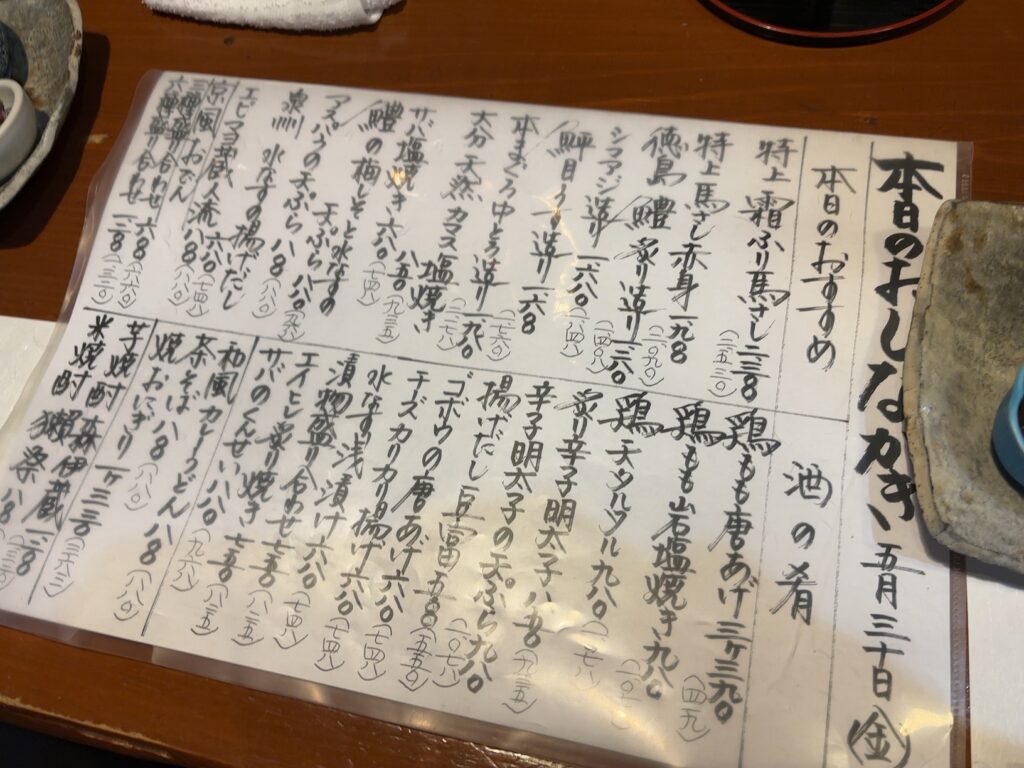 本日のおしながき 五月三十日㊎
本日のおすすめ
特上 霜ふり馬さし 二三8
特上 馬さし赤身 一九8
徳島 鱧 炙り造り 一三八〇
シマアジ造り 一六八〇
本まぐろ中とろ造り 一九八〇
大分 天然カマス塩焼き
サバ塩焼き 六八〇(七四八)
鱧の梅しそと水なすの天ぷら 八五〇(九三五)
アスパラの天ぷら 八八〇
泉州 水なすの揚げだし
エビマヨ武蔵人流 八八〇
京風おでん
三種盛り合わせ 六8
六種盛り合わせ 一二8
酒の肴
鶏もも唐あげ 三ヶ三九〇(四二九)
鶏もも山岩塩焼き 九八〇
鶏天タルタル 九八〇(一〇七八)
炙り辛子明太子 八五〇(九三五)
辛子明太子の天ぷら 九八〇(一〇七八)
揚げだし豆富 五〇〇(五五〇)
ゴボウの唐あげ 六八〇(七四八)
チーズカリカリ揚げ 六八〇(七四八)
水なす浅漬け 六八〇(七四八)
漬物盛り合わせ 七五〇(八二五)
エイヒレ炙り焼き 七五〇(八二五)
サバのくんせい 八八〇(九六八)
和風カレーうどん 八8(八八〇)
茶そば 八8(八八〇)
焼おにぎり 一ヶ三三〇(三六三)
芋焼酎 森伊蔵 一二8
米焼酎 獺祭 八8